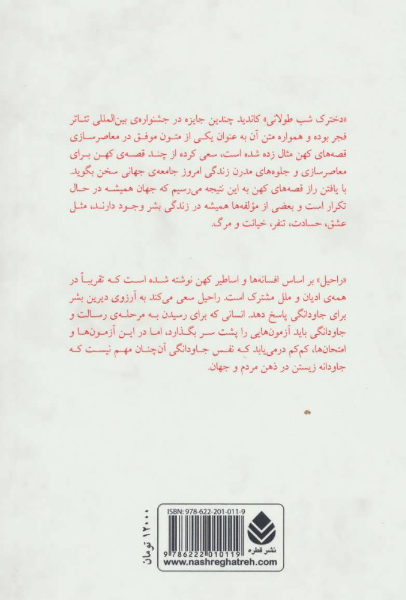 «دخترک شب طولانی» کاندید چندین جایزه در جشنواره‌ی بین‌المللی تئاتر
فجر بوده و همواره متن آن به عنوان یکی از متون موفق در معاصرسازی
قصه‌های کهن مثال زده شده است، سعی کرده از چند قصه‌ی کهن برای
معاصرسازی و جلوه‌های مدرن زندگی امروز جامعه‌ی جهانی سخن بگوید.
با یافتن راز قصه‌های کهن به این نتیجه می‌رسیم که جهان همیشه در حال
تکرار است و بعضی از مؤلفه‌ها همیشه در زندگی بشر وجود دارند، مثل
عشق، حسادت، تنفر، خیانت و مرگ.
«راحیل» بر اساس افسانه‌ها و اساطیر کهن نوشته شده است که تقریباً در
همه‌ی ادیان و ملل مشترک است. راحیل سعی می‌کند به آرزوی دیرین بشر
برای جاودانگی پاسخ دهد. انسانی که برای رسیدن به مرحله‌ی رسالت و
جاودانگی باید آزمون‌هایی را پشت سر بگذارد، اما در این آزمون‌ها و
امتحان‌ها، کم‌کم درمی‌یابد که نفس جاودانگی آن‌چنان مهم نیست که
جاودانه زیستن در ذهن مردم و جهان.
۱۲۰۰۰ تومان
ISBN: 978-622-201-011-9
9 786222 010119
نشر قطره
www.nashreghatreh.com